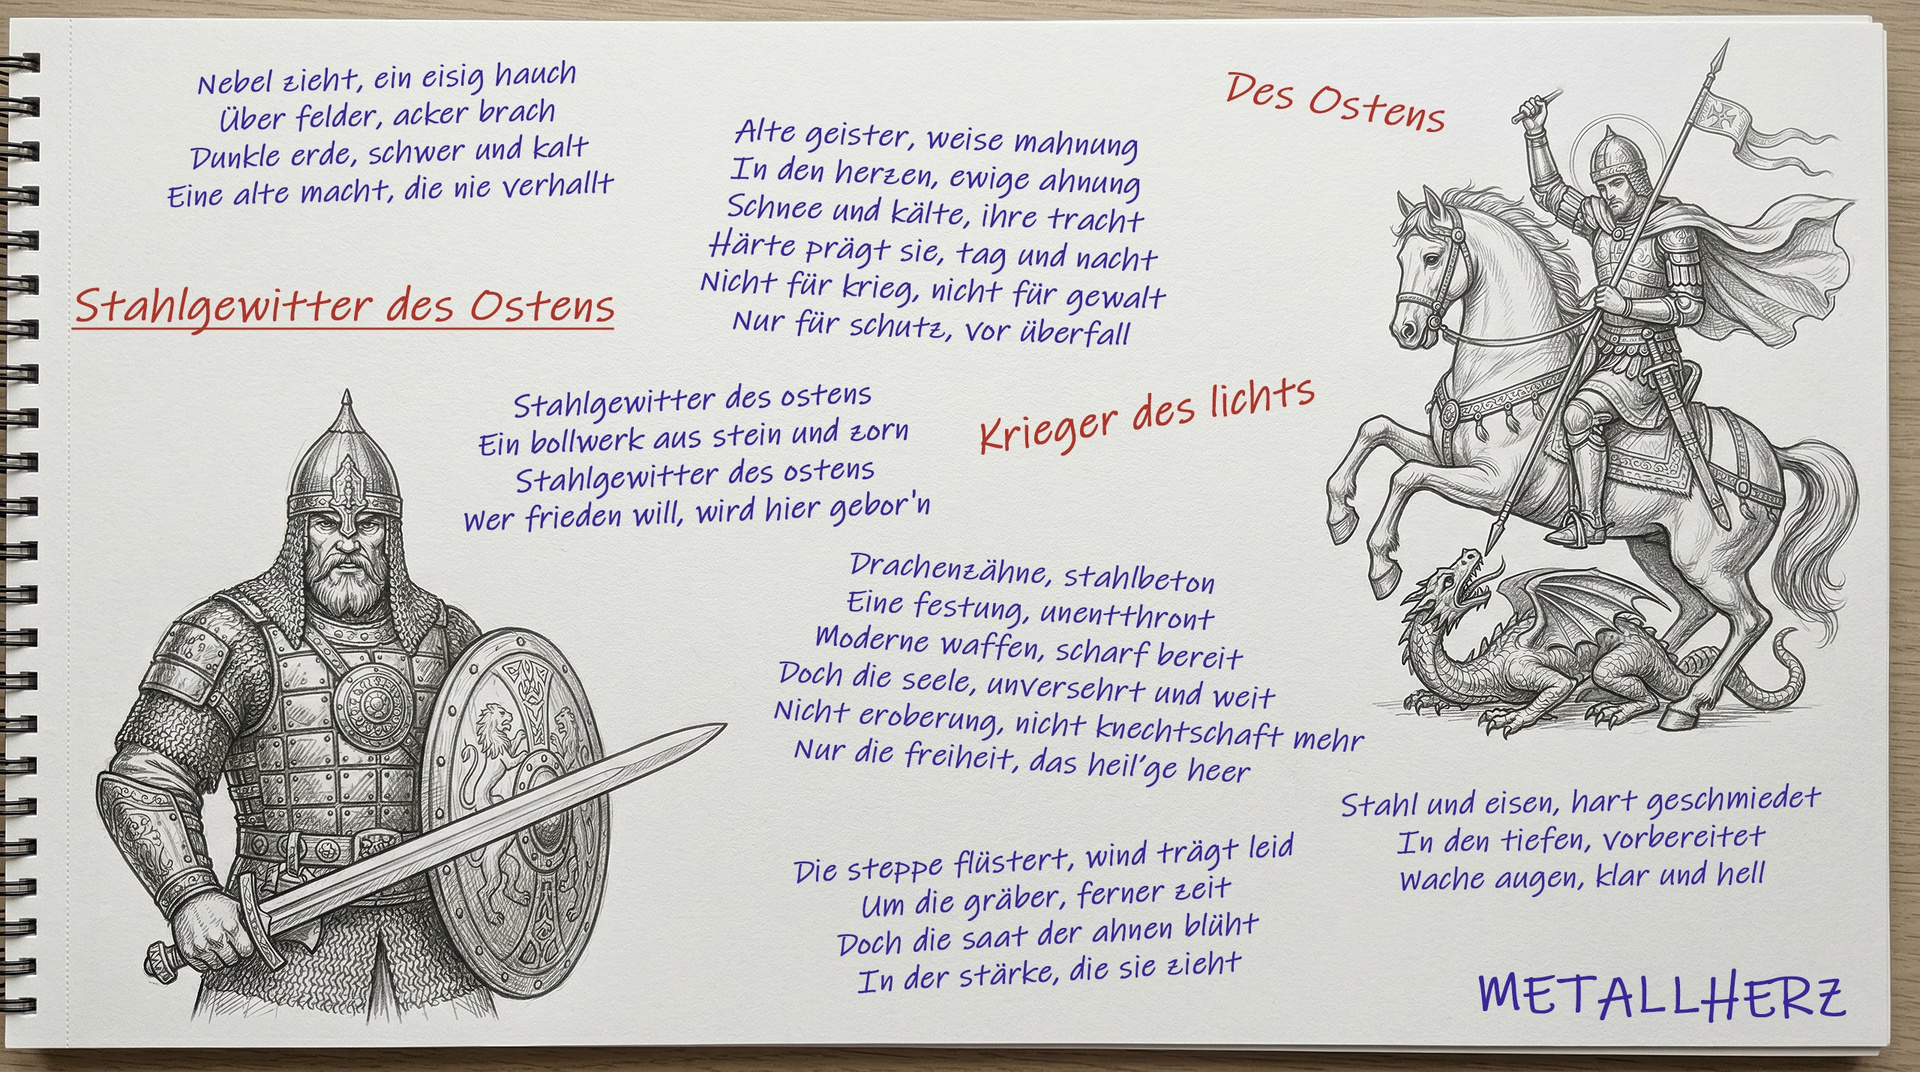 Nebel zieht, ein eisig hauch
Über felder, acker brach
Dunkle erde, schwer und kalt
Eine alte macht, die nie verhallt
Stahlgewitter des Ostens
Alte geister, weise mahnung
In den herzen, ewige ahnung
Schnee und kälte, ihre tracht
Härte prägt sie, tag und nacht
Nicht für krieg, nicht für gewalt
Nur für schutz, vor überfall
Des Ostens
Stahlgewitter des ostens
Ein bollwerk aus stein und zorn
Stahlgewitter des ostens
Wer frieden will, wird hier gebor'n
Krieger des lichts
Drachenzähne, stahlbeton
Eine festung, unentthront
Moderne waffen, scharf bereit
Doch die seele, unversehrt und weit
Nicht eroberung, nicht knechtschaft mehr
Nur die freiheit, das heil'ge heer
Die steppe flüstert, wind trägt leid
Um die gräber, ferner zeit
Doch die saat der ahnen blüht
In der stärke, die sie zieht
Stahl und eisen, hart geschmiedet
In den tiefen, vorbereitet
Wache augen, klar und hell
METALLHERZ